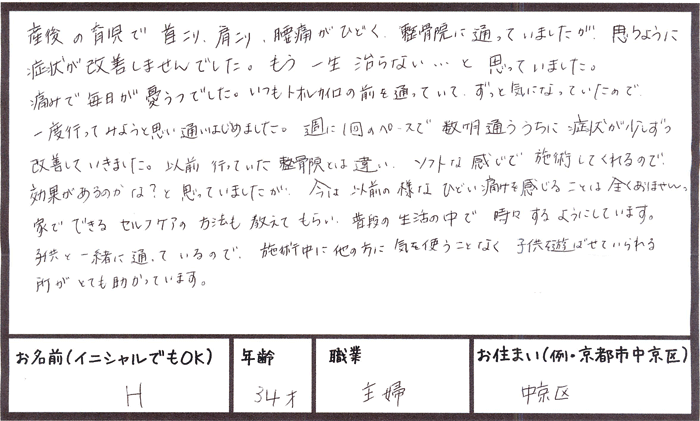 産後の育児で首こり、肩こり、腰痛がひどく、整骨院に通っていましたが、思うように
症状が改善しませんでした。もう一生治らない…と思っていました。
痛みで毎日が憂うつでした。いつもトオルカイロの前を通っていて、ずっと気になっていたので、
一度行ってみようと思い通いはじめました。週に1回のペースで数ヶ月通ううちに症状が少しずつ
改善していきました。以前行っていた整骨院とは違い、ソフトな感じで施術してくれるので、
効果があるのかな？と思っていましたが、今は以前の様なひどい痛みを感じることは全くありません。
家でできるセルフケアの方法も教えてもらい、普段の生活の中で時々するようにしています。
子供と一緒に通っているので、施術中に他の方に気を使うことなく子供を遊ばせていられる
所がとても助かっています。
お名前(イニシャルでもOK) 年齢 職業 お住まい(例・京都市中京区)
H 34才 主婦 中京区